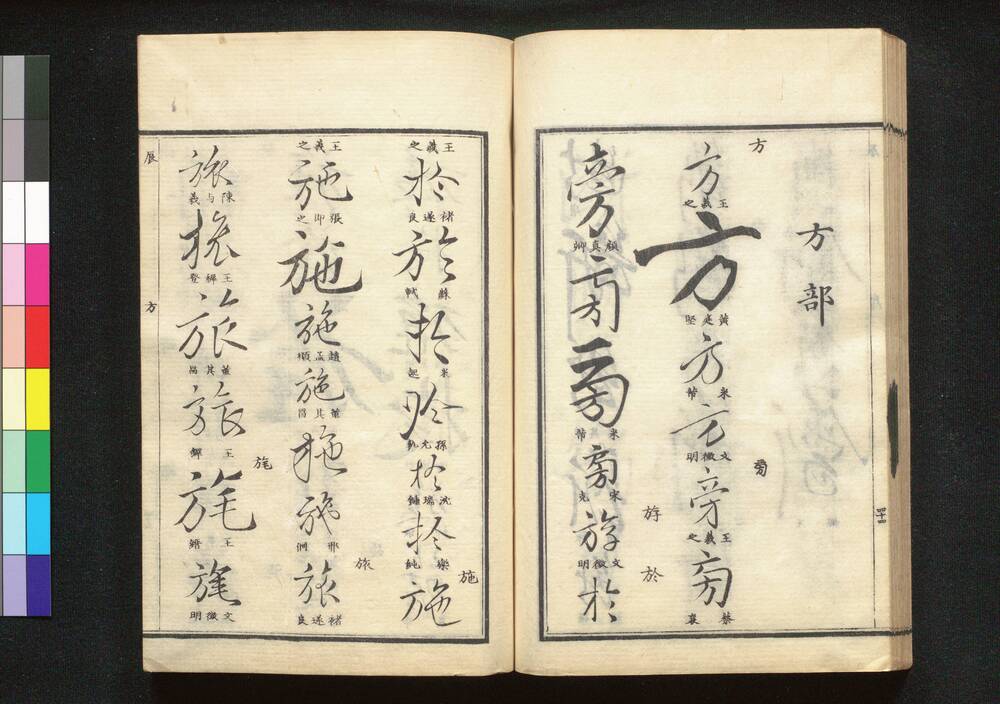 方部
方
方
王羲之
方
黄庭堅
方
米芾
方
文徴明
旁
王羲之
旁
蔡襄
旁
顔真卿
旁
旁
米芾
旁
宋克
斿
游
文徴明
於
於
王羲之
於
褚遂良
於
蘇軾
於
於
於
於
樂純
施
施
王羲之
施
張即之
施
施
趙孟頫
施
董其昌
施
施
邢侗
旅
旅
褚遂良
旅
陳与義
旅
王穉登
旅
董其昌
旅
王鐸
旄
旄
旄
文徴明
辰
方